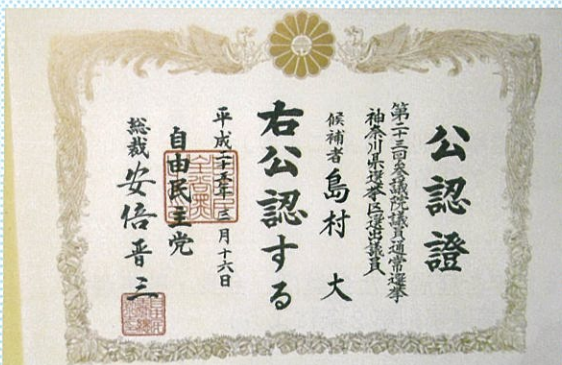 公認證
第二十三回参議院議員通常選挙
神奈川県選挙区選出議員
候補者 島村 大
右公認する
平成二十五年三月十六日
自由民主党
総裁 安倍晋三